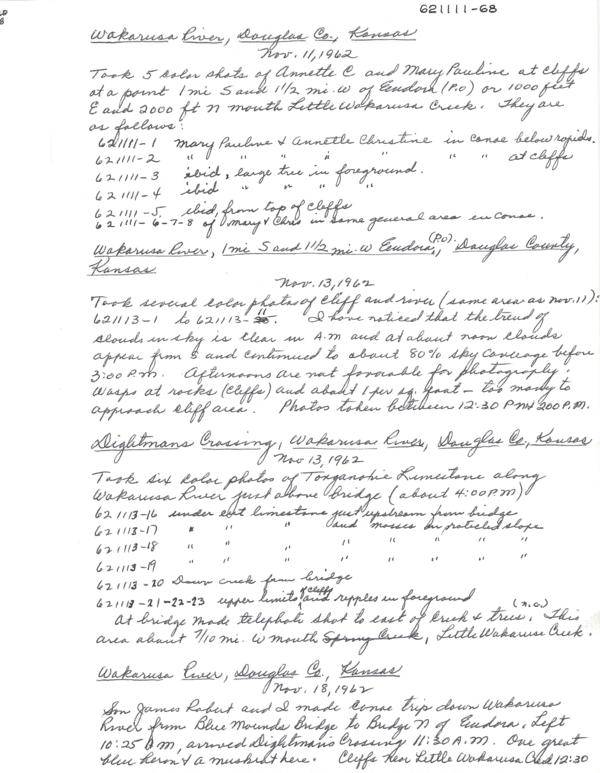 621111-68
Wakarusa River, Douglas Co., Kansas
Nov. 11, 1962
Took 5 color shots of Annette C and Mary Pauline at cliffs
at a point 1 mi S and 1 1/2 mi. W of Eudora (P.O) or 1000 feet
E and 2000 ft N mouth Little Wakarusa Creek. They are
as follows:
621111-1 Mary Pauline & Annette Christine in canoe below rapids.
621111-2 " " " " " " " at cliffs
621111-3 ibid, large tree in foreground.
621111-4 ibid " " " "
621111-5. ibid, from top of cliffs
621111-6-7-8 of Mary & Chris in same general area in canoe.
Wakarusa River, 1 mi S and 1 1/2 mi. W Eudora (P.O)., Douglas County,
Kansas
Nov. 13, 1962
Took several color photos of cliff and river (same area as Nov. 11):
621113-1 to 621113-15. I have noticed that the trend of
clouds in sky is clear in A.M and at about noon clouds
appear from S and continued to about 80% sky coverage before
3:00 P.M. Afternoons are not favorable for photography.
Wasps at rocks (cliffs) and about 1 per sq. foot - too many to
approach cliff area. Photos taken between 12:30 PM & 200 P.M.
Dightmans Crossing, Wakarusa River, Douglas Co., Kansas
Nov 13, 1962
Took six color photos of Tonganoxie Limestone along
Wakarusa River just above bridge (about 4:00 P.M)
621113-16 under cut limestone just upstream from bridge
621113-17 " " " and mosses on protected slope
621113-18 " " " " " " "
621113-19 " " " " " " "
621113-20 Down creek from bridge
621113-21-22-23 upper limits of cliffs and ripples in foreground
At bridge made telephoto shot to east of creek & trees. (n.g.) This
area about 7/10 mi. W mouth Spring Creek, Little Wakarusa Creek.
Wakarusa River, Douglas Co., Kansas
Nov. 18, 1962
Son James Robert and I made canoe trip down Wakarusa
River from Blue Mounds Bridge to Bridge N of Eudora. Left
10:25 AM, arrived Dightman's Crossing 11:30 A.M. One great
blue heron & a muskrat here. Cliffs near Little Wakarusa Creek 12:30